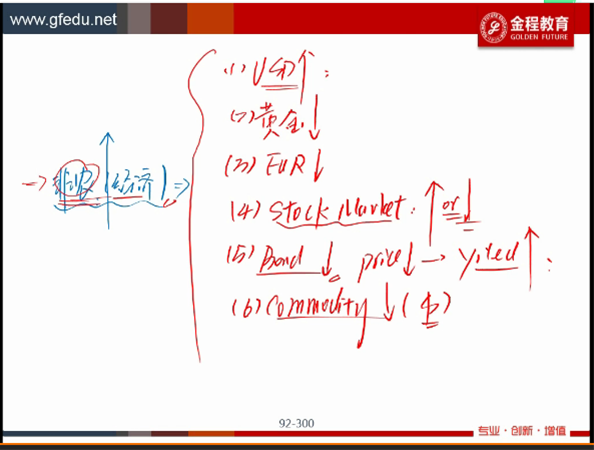 www.gfedu.net
金程教育
GOLDEN FUTURE
(1) USD↑:
(2) 黄金↓
(3) EUR↓
→ 非农↑(经济) ⇒
(4) Stock Market: ↑ or ↓
(5) Bond ↓ price↓ → Yiled↑:
(6) Commodity ↓
92-300
专业·创新·增值